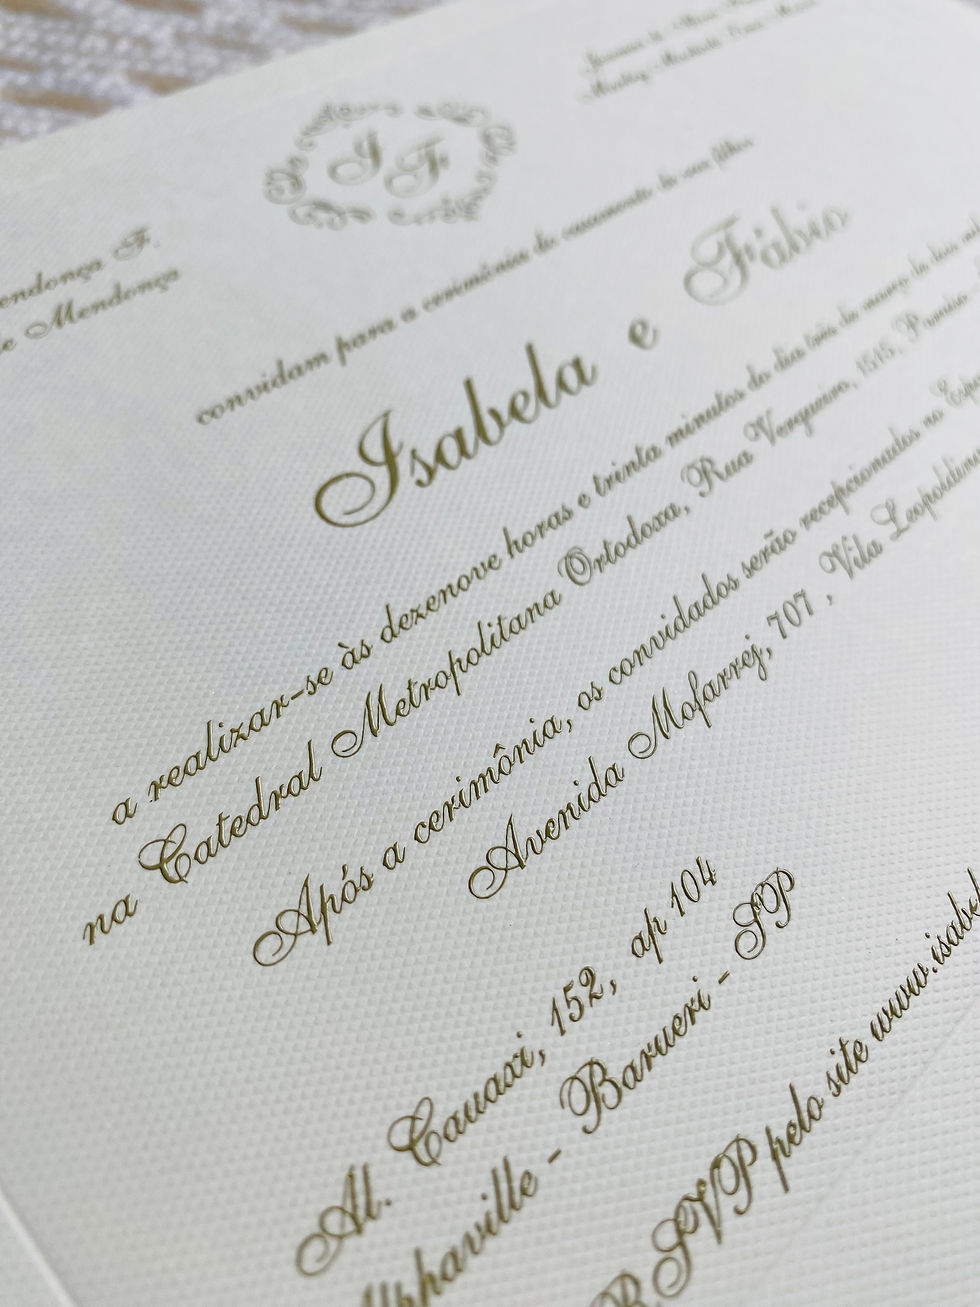 I F
Mendonça F.
e Mendonça
convidam para a cerimônia de casamento de seus filhos
Isabela e Fábio
a realizar-se às dezenove horas e trinta minutos do dia três de março de dois mil
na Catedral Metropolitana Ortodoxa, Rua Vergueiro, 1515, Paraíso
Após a cerimônia, os convidados serão recepcionados no
Avenida Mofarrej, 707 , Vila Leopoldina
Al. Cauaxi, 152, ap 104
Alphaville - Barueri - SP
RSVP pelo site www.isabel